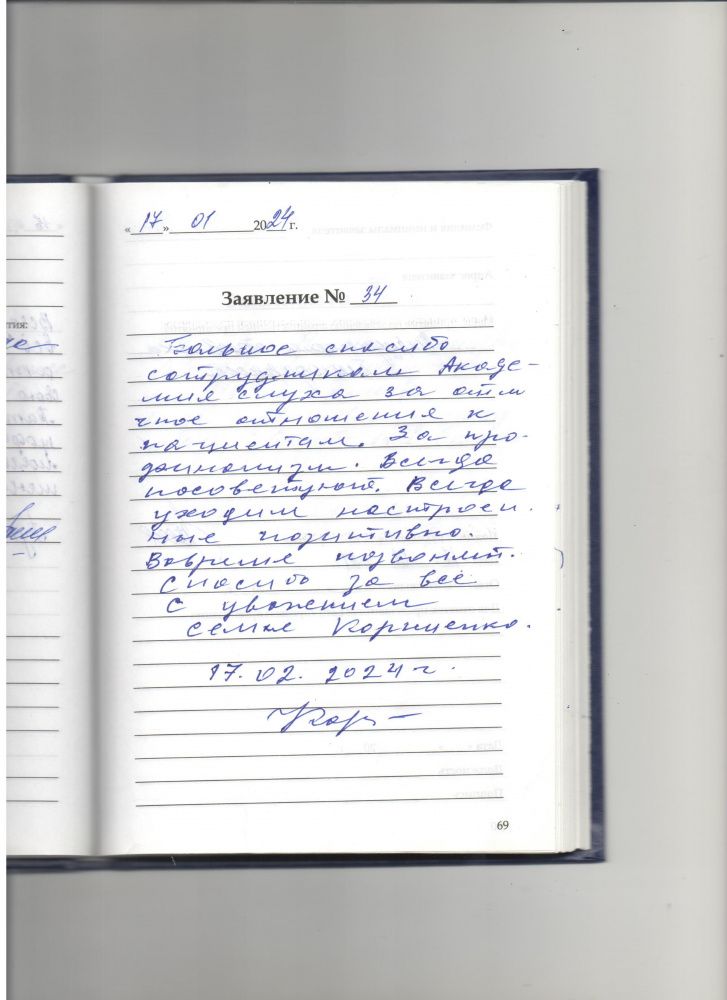 «17» 01 2024 г.
Заявление № 34
Большое спасибо
сотрудникам Акаде-
мия слуха за отли
чное отношения к
пациентам. За про-
Всегда
посоветуют. Всегда
уходим настроен.
ные позитивно.
Вовремя позвонят.
Спасибо за всё
С уважением
семья Корниенко.
17.02.2024 г.
69